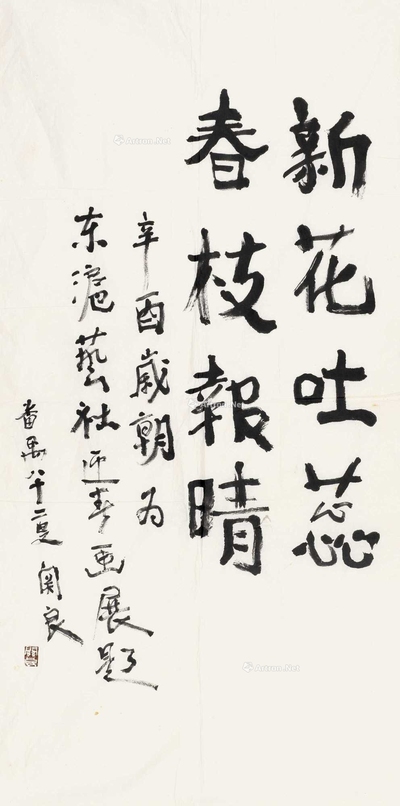 新花吐蕊
春枝報晴
辛酉歲朝为
东滬藝社迎春画展题
番禺八十二叟 関良
Artron.Net
Artron.Net
Artron.Net